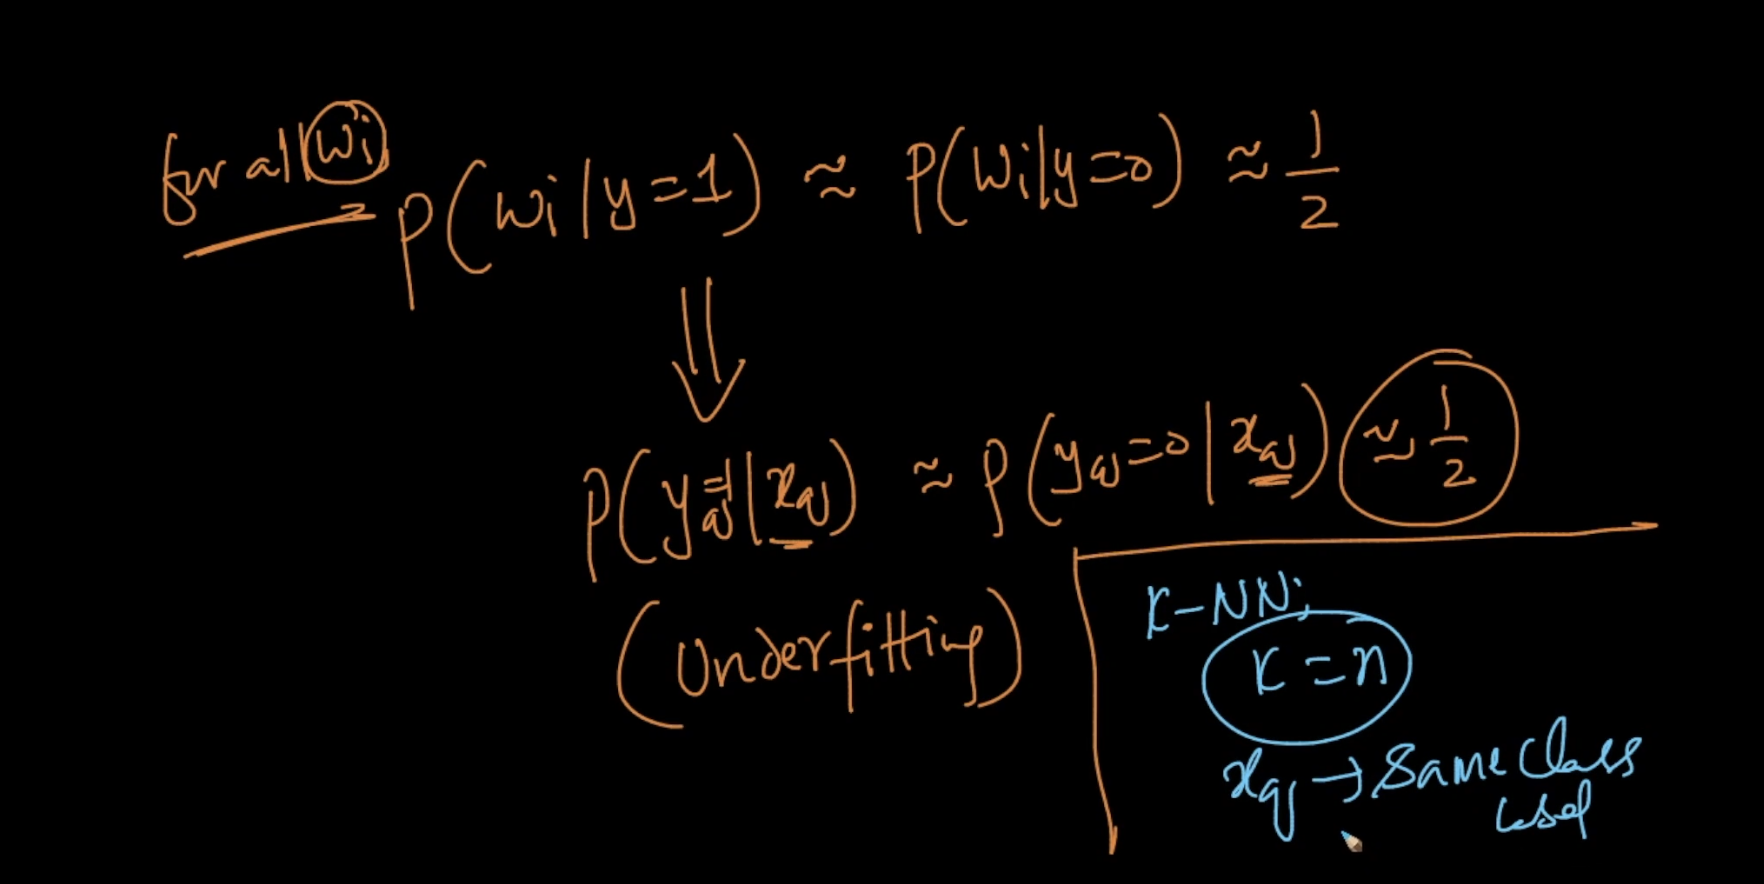 for all wi P(wi|y=1) ≈ P(wi|y=0) ≈ 1/2
⇓
P(yq=1|xq) ≈ P(yq=0|xq) ≈ 1/2
(Underfitting)
K-NN;
K=n
xq → same class
label